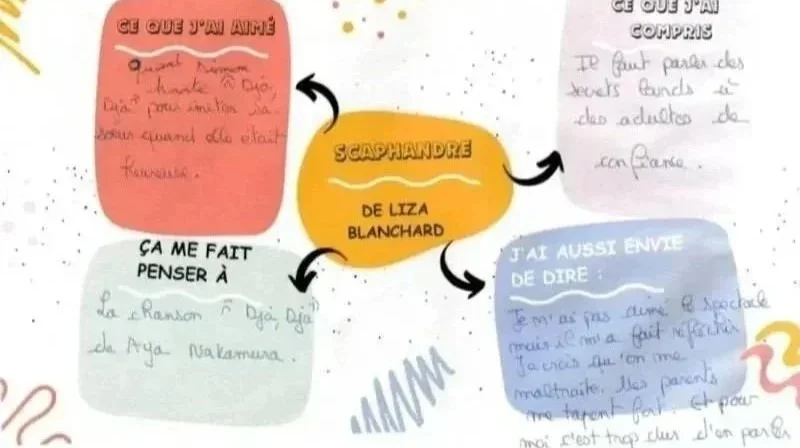 CE QUE J'AI AIMÉ
Quand Simon
chante "Djà,
Djà" pour imiter sa
sœur quand elle était
heureuse.
CE QUE J'AI
COMPRIS
Il faut parler des
secrets lourds à
des adultes de
confiance.
SCAPHANDRE
DE LIZA
BLANCHARD
ÇA ME FAIT
PENSER À
La chanson "Djà, Djà"
de Aya Nakamura.
J'AI AUSSI ENVIE
DE DIRE :
Je n'ai pas aimé le spectacle
mais il m'a fait réfléchir
Je crois qu'on me
maltraite. Mes parents
me tapent fort. Et pour
moi c'est trop dur d'en parler